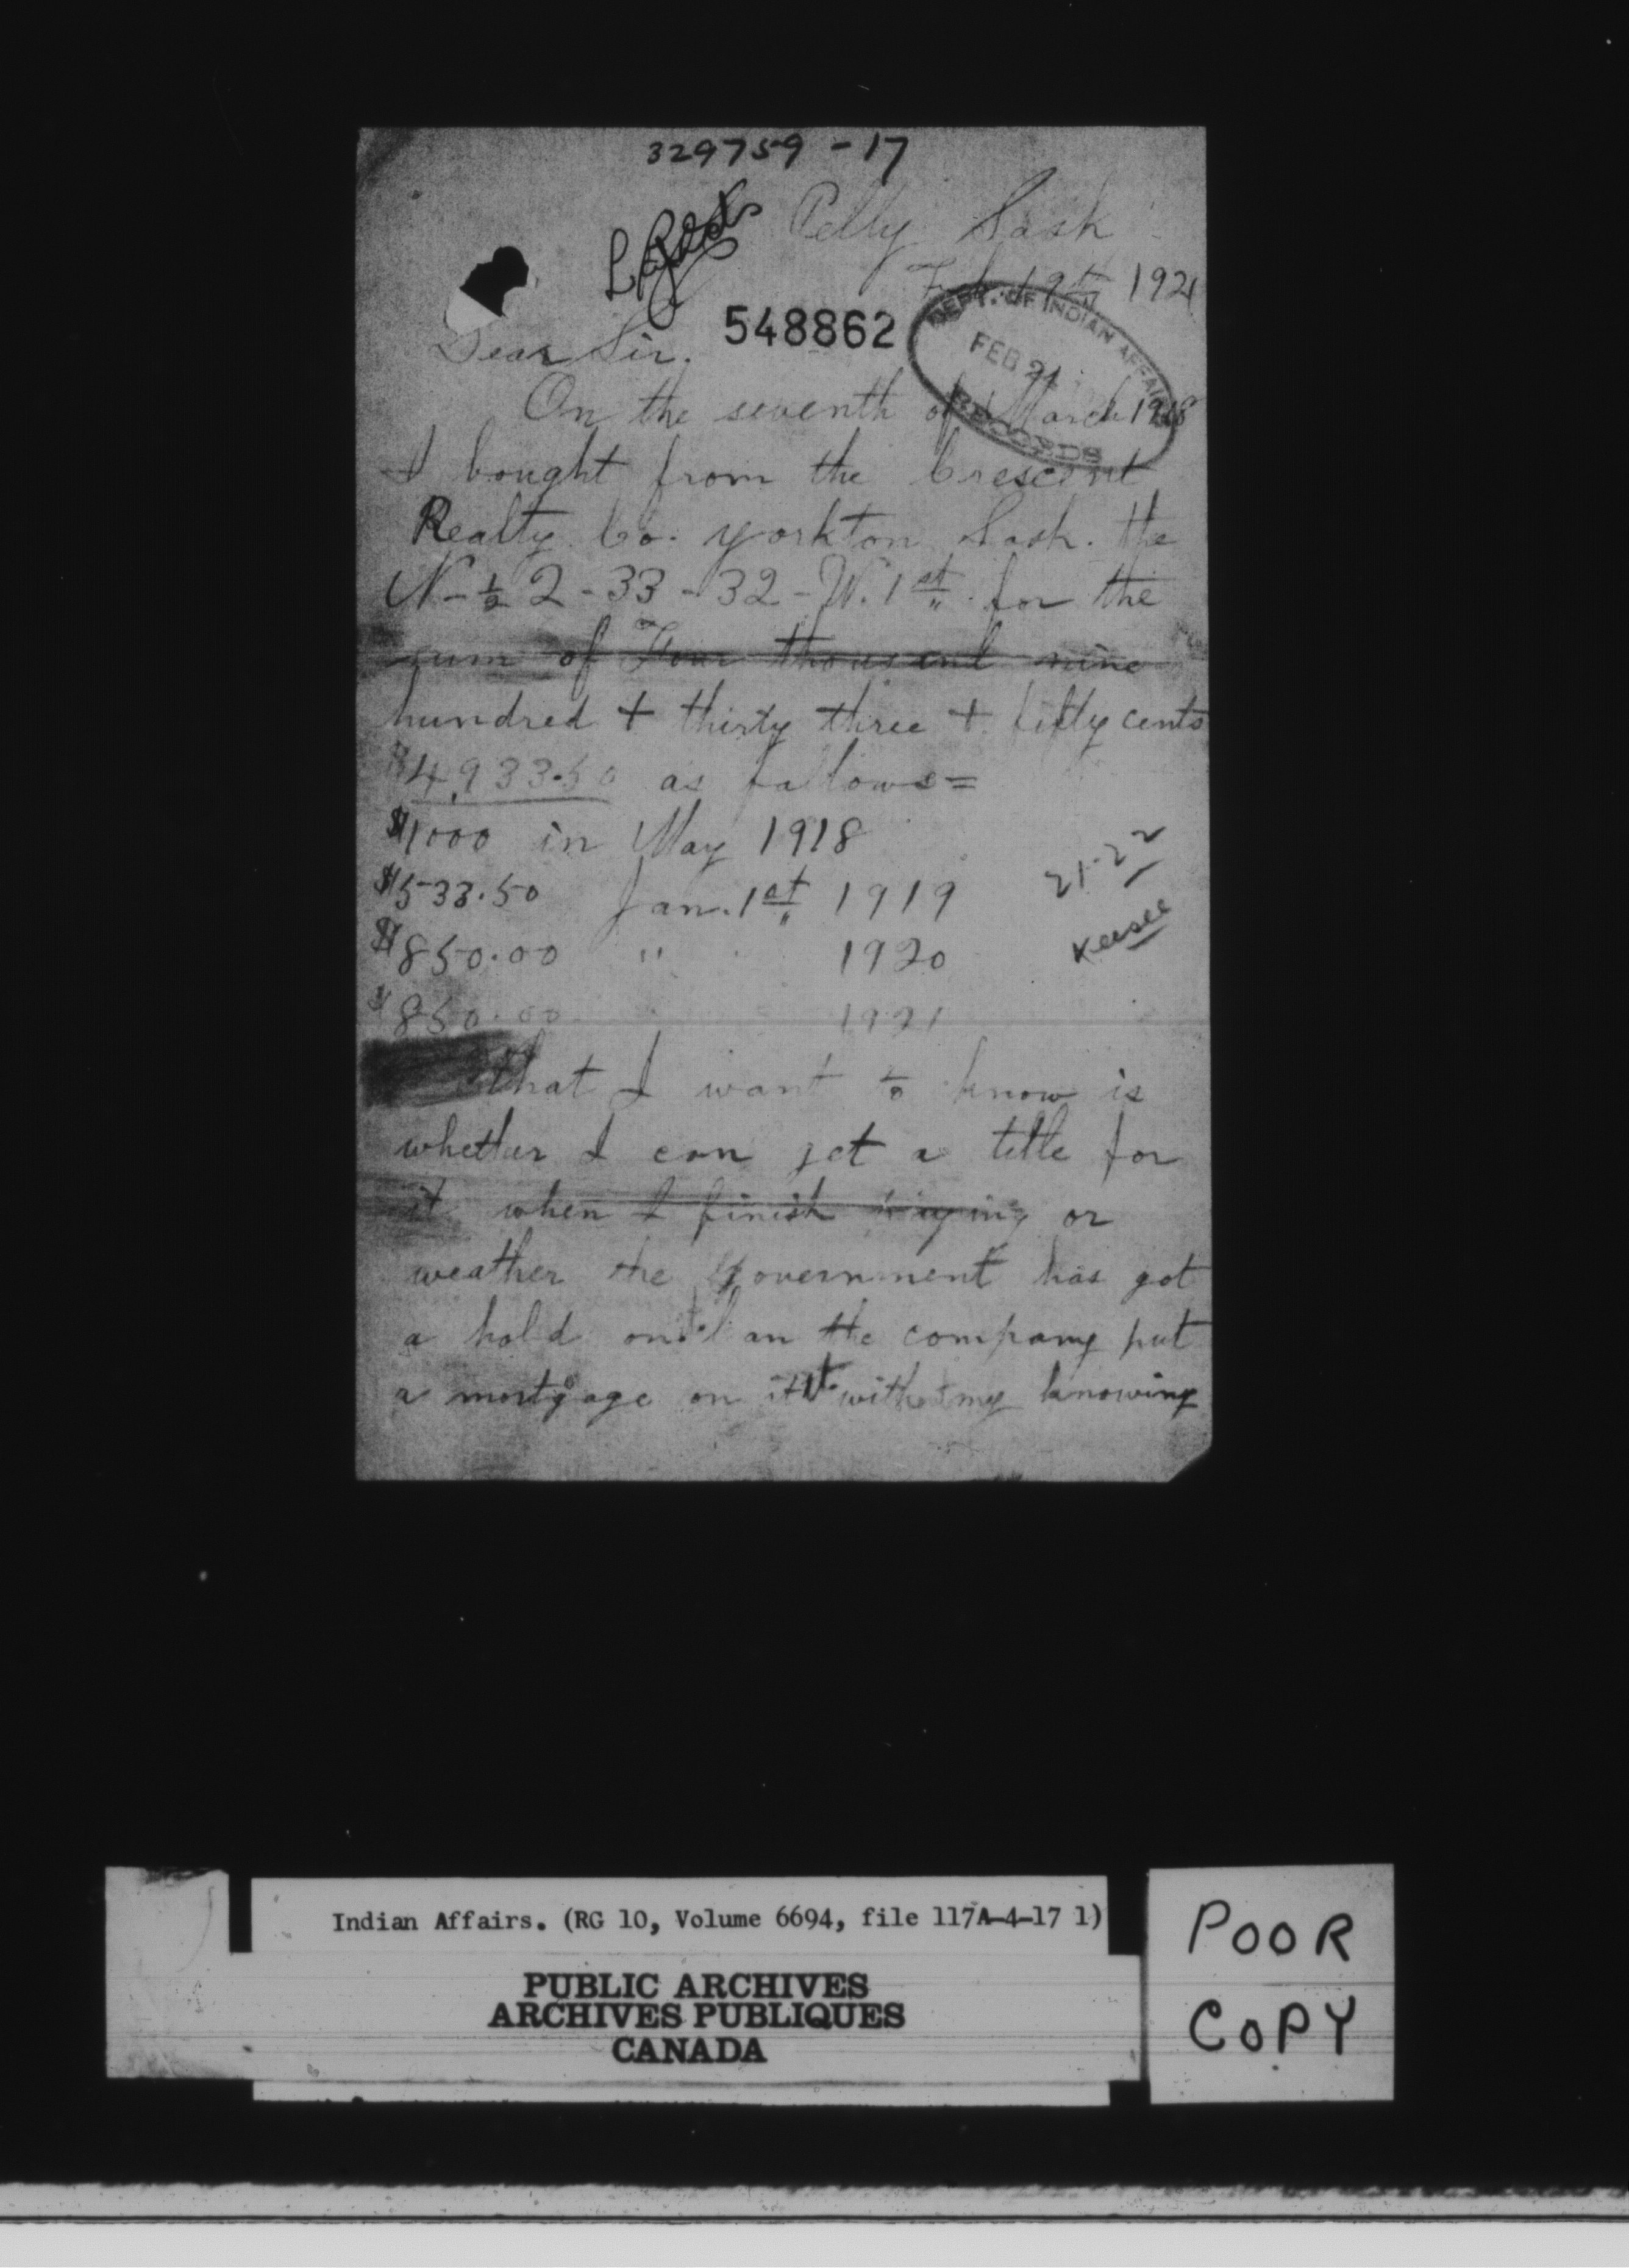 329759 - 17
Pelly Sask
Feb 19th 1921
548862
DEPT. OF INDIAN AFFAIRS
FEB 21
RECORDS
Dear Sir.
On the seventh of March 1918
I bought from the Crescent
Realty Co. Yorkton Sask. the
N-½ 2-33-32-W.1st for the
sum of Four thousand nine
hundred + thirty three + fifty cents
$4,933.50 as fallows=
$1000 in May 1918
$533.50 Jan. 1st 1919
$850.00 " 1920
$850.00 1921
21-22
What I want to know is
whether I can get a title for
it when I finish paying or
weather the Government has got
a hold on it an the company put
a mortgage on it with my knowing
Indian Affairs. (RG 10, Volume 6694, file 117A-4-17 1)
PUBLIC ARCHIVES
ARCHIVES PUBLIQUES
CANADA
POOR
COPY